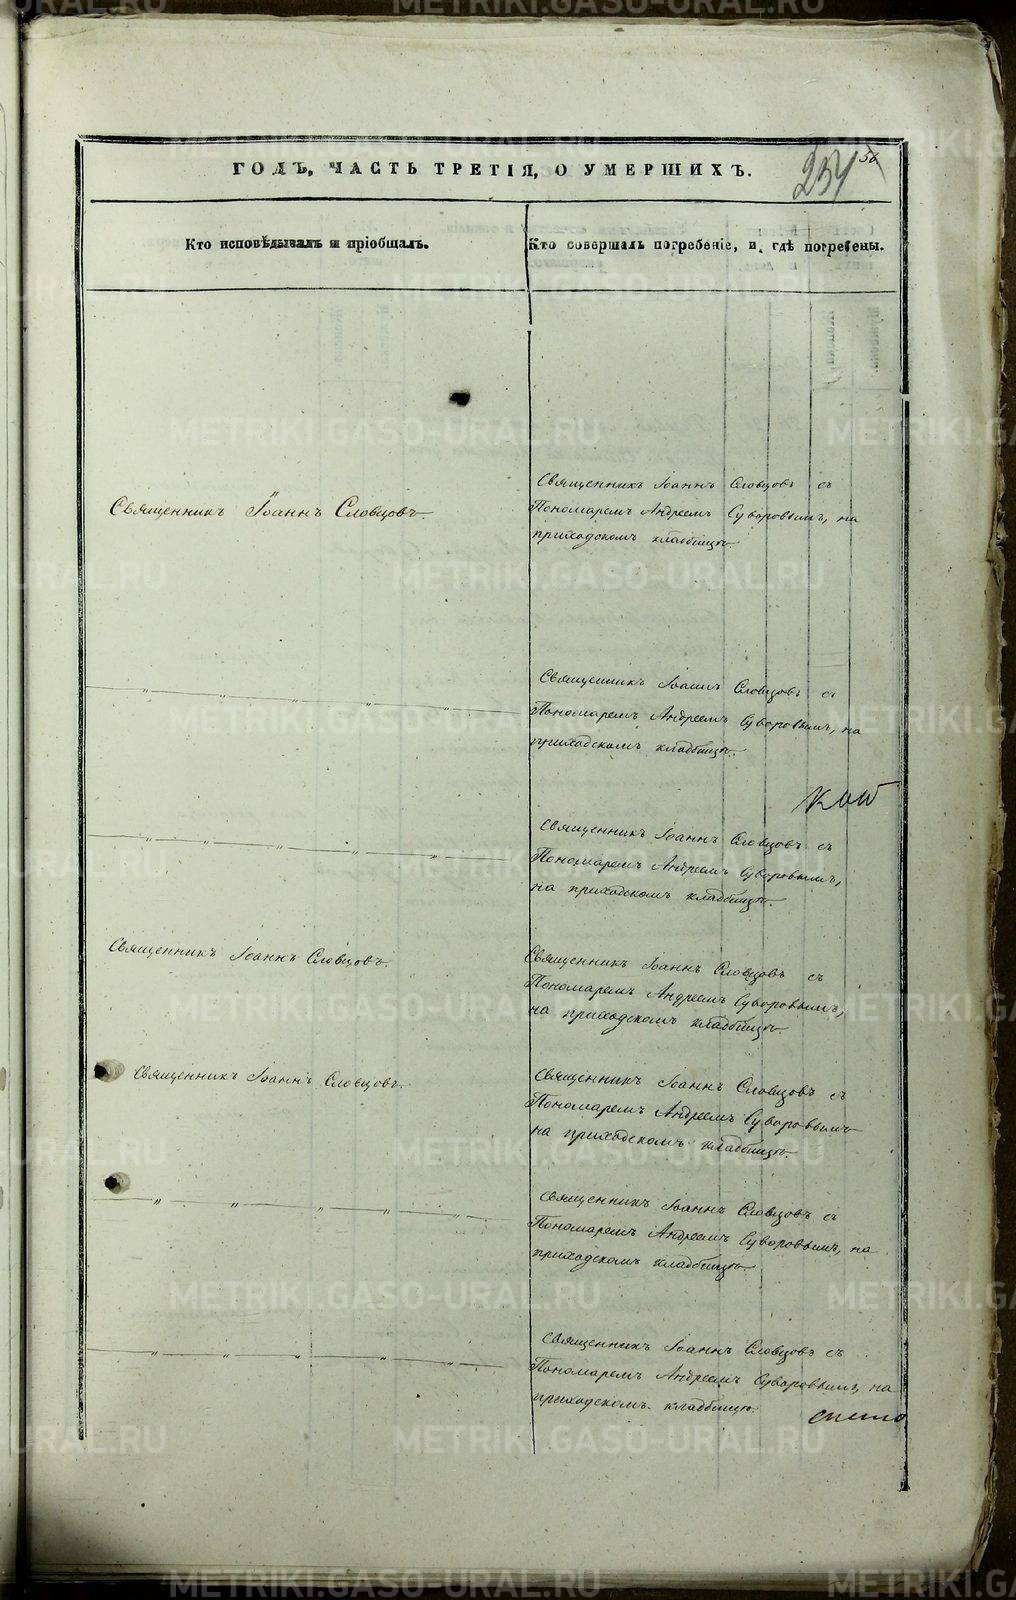 ГОДЪ, ЧАСТЬ ТРЕТІЯ, О УМЕРШИХЪ.
257
56
Кто исповѣдывалъ и пріобщалъ.
Кто совершалъ погребеніе, и гдѣ погребены.
Священникъ Іоаннъ Словцовъ.
Священникъ Іоаннъ Словцовъ съ
Пономаремъ Андреемъ Суворовымъ, на
приходскомъ кладбищѣ.
— „ — „ — „ — „ —
Священникъ Іоаннъ Словцовъ съ
Пономаремъ Андреемъ Суворовымъ, на
приходскомъ кладбищѣ.
— „ — „ — „ — „ —
Священникъ Іоаннъ Словцовъ съ
Пономаремъ Андреемъ Суворовымъ,
на приходскомъ кладбищѣ.
Священникъ Іоаннъ Словцовъ.
Священникъ Іоаннъ Словцовъ съ
Пономаремъ Андреемъ Суворовымъ,
на приходскомъ кладбищѣ.
Священникъ Іоаннъ Словцовъ.
Священникъ Іоаннъ Словцовъ съ
Пономаремъ Андреемъ Суворовымъ
на приходскомъ кладбищѣ.
— „ — „ — „ — „ —
Священникъ Іоаннъ Словцовъ съ
Пономаремъ Андреемъ Суворовымъ, на
приходскомъ кладбищѣ.
— „ — „ — „ — „ —
Священникъ Іоаннъ Словцовъ съ
Пономаремъ Андреемъ Суворовымъ, на
приходскомъ кладбищѣ.
METRIKI.GASO-URAL.RU